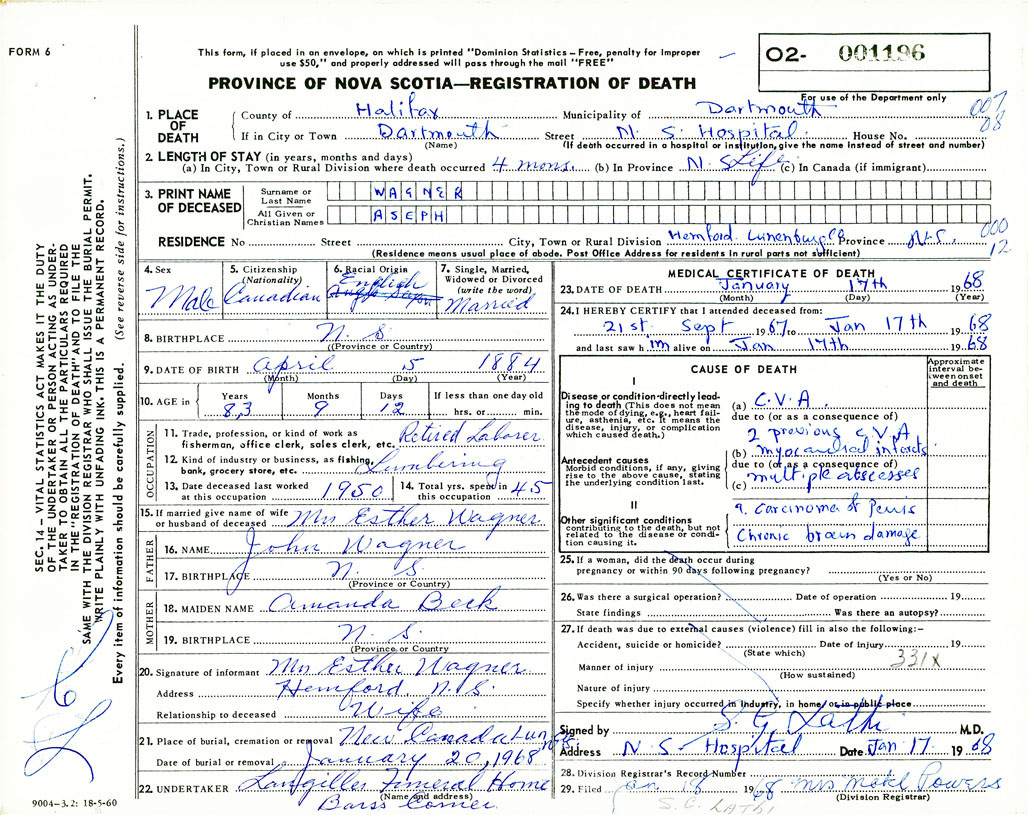 FORM 6
This form, if placed in an envelope, on which is printed "Dominion Statistics – Free, penalty for improper
use $50," and properly addressed will pass through the mail "FREE"
O2- 001196
For use of the Department only
PROVINCE OF NOVA SCOTIA—REGISTRATION OF DEATH
007
08
1. PLACE OF DEATH
County of Halifax Municipality of Dartmouth
If in City or Town Dartmouth Street N. S. Hospital House No.
(Name) (If death occurred in a hospital or institution, give the name instead of street and number)
2. LENGTH OF STAY (in years, months and days)
(a) In City, Town or Rural Division where death occurred 4 mons. (b) In Province N. S. Life (c) In Canada (if immigrant)
3. PRINT NAME OF DECEASED
Surname or Last Name WAGNER
All Given or Christian Names ASEPH
000
12
RESIDENCE No Street City, Town or Rural Division Hemford. Lunenburg Co Province N.S.
(Residence means usual place of abode. Post Office Address for residents in rural parts not sufficient)
4. Sex Male
5. Citizenship (Nationality) Canadian
6. Racial Origin English Anglo Saxon
7. Single, Married, Widowed or Divorced (write the word) Married
8. BIRTHPLACE N. S.
(Province or Country)
9. DATE OF BIRTH April 5 1884
(Month) (Day) (Year)
10. AGE in Years Months Days If less than one day old
83 9 12 hrs. or min.
OCCUPATION
11. Trade, profession, or kind of work as
fisherman, office clerk, sales clerk, etc. Retired Laborer
12. Kind of industry or business, as fishing,
bank, grocery store, etc. Lumbering
13. Date deceased last worked
at this occupation 1950
14. Total yrs. spent in
this occupation 45
15. If married give name of wife
or husband of deceased Mrs Esther Wagner
FATHER
16. NAME John Wagner
17. BIRTHPLACE N. S.
(Province or Country)
MOTHER
18. MAIDEN NAME Amanda Beck
19. BIRTHPLACE N. S.
(Province or Country)
20. Signature of informant Mrs Esther Wagner
Address Hemford, N. S.
Relationship to deceased Wife
21. Place of burial, cremation or removal New Canada Lun
Date of burial or removal January 20, 1968
22. UNDERTAKER Langilles Funeral Home
(Name and address)
Barss Corner
9004–3.2: 18-5-60
MEDICAL CERTIFICATE OF DEATH
23. DATE OF DEATH January 17th 1968
(Month) (Day) (Year)
24. I HEREBY CERTIFY that I attended deceased from:
21st Sept 1967 to Jan 17th 1968
and last saw him alive on Jan 17th 1968
CAUSE OF DEATH
Approximate interval between onset and death
I
Disease or condition directly leading
to death (This does not mean
the mode of dying, e.g., heart failure,
asthenia, etc. It means the
disease, injury, or complication
which caused death.)
(a) C.V.A
due to (or as a consequence of)
2 previous C.V.A
Antecedent causes
Morbid conditions, if any, giving
rise to the above cause, stating
the underlying condition last.
(b) myocardial infarcts
due to (or as a consequence of)
(c) multiple abscesses
II
Other significant conditions
contributing to the death, but not
related to the disease or condition
causing it.
Carcinoma of Penis
Chronic brain damage
25. If a woman, did the death occur during
pregnancy or within 90 days following pregnancy?
(Yes or No)
26. Was there a surgical operation? Date of operation 19
State findings Was there an autopsy?
27. If death was due to external causes (violence) fill in also the following:–
Accident, suicide or homicide? Date of injury 19
(State which) 331x
Manner of injury
(How sustained)
Nature of injury
Specify whether injury occurred in industry, in home/or in public place
Signed by S. G. Lathi M.D.
Address N. S. Hospital Date Jan 17 1968
28. Division Registrar's Record Number
29. Filed Jan 18 1968 Mrs Powers
(Division Registrar)
S. G. LATHI
SEC. 14 – VITAL STATISTICS ACT MAKES IT THE DUTY
OF THE UNDERTAKER OR PERSON ACTING AS UNDERTAKER
TO OBTAIN ALL THE PARTICULARS REQUIRED
IN THE "REGISTRATION OF DEATH" AND TO FILE THE
SAME WITH THE DIVISION REGISTRAR WHO SHALL ISSUE THE BURIAL PERMIT.
WRITE PLAINLY WITH UNFADING INK. THIS IS A PERMANENT RECORD.
Every item of information should be carefully supplied. (See reverse side for instructions.)